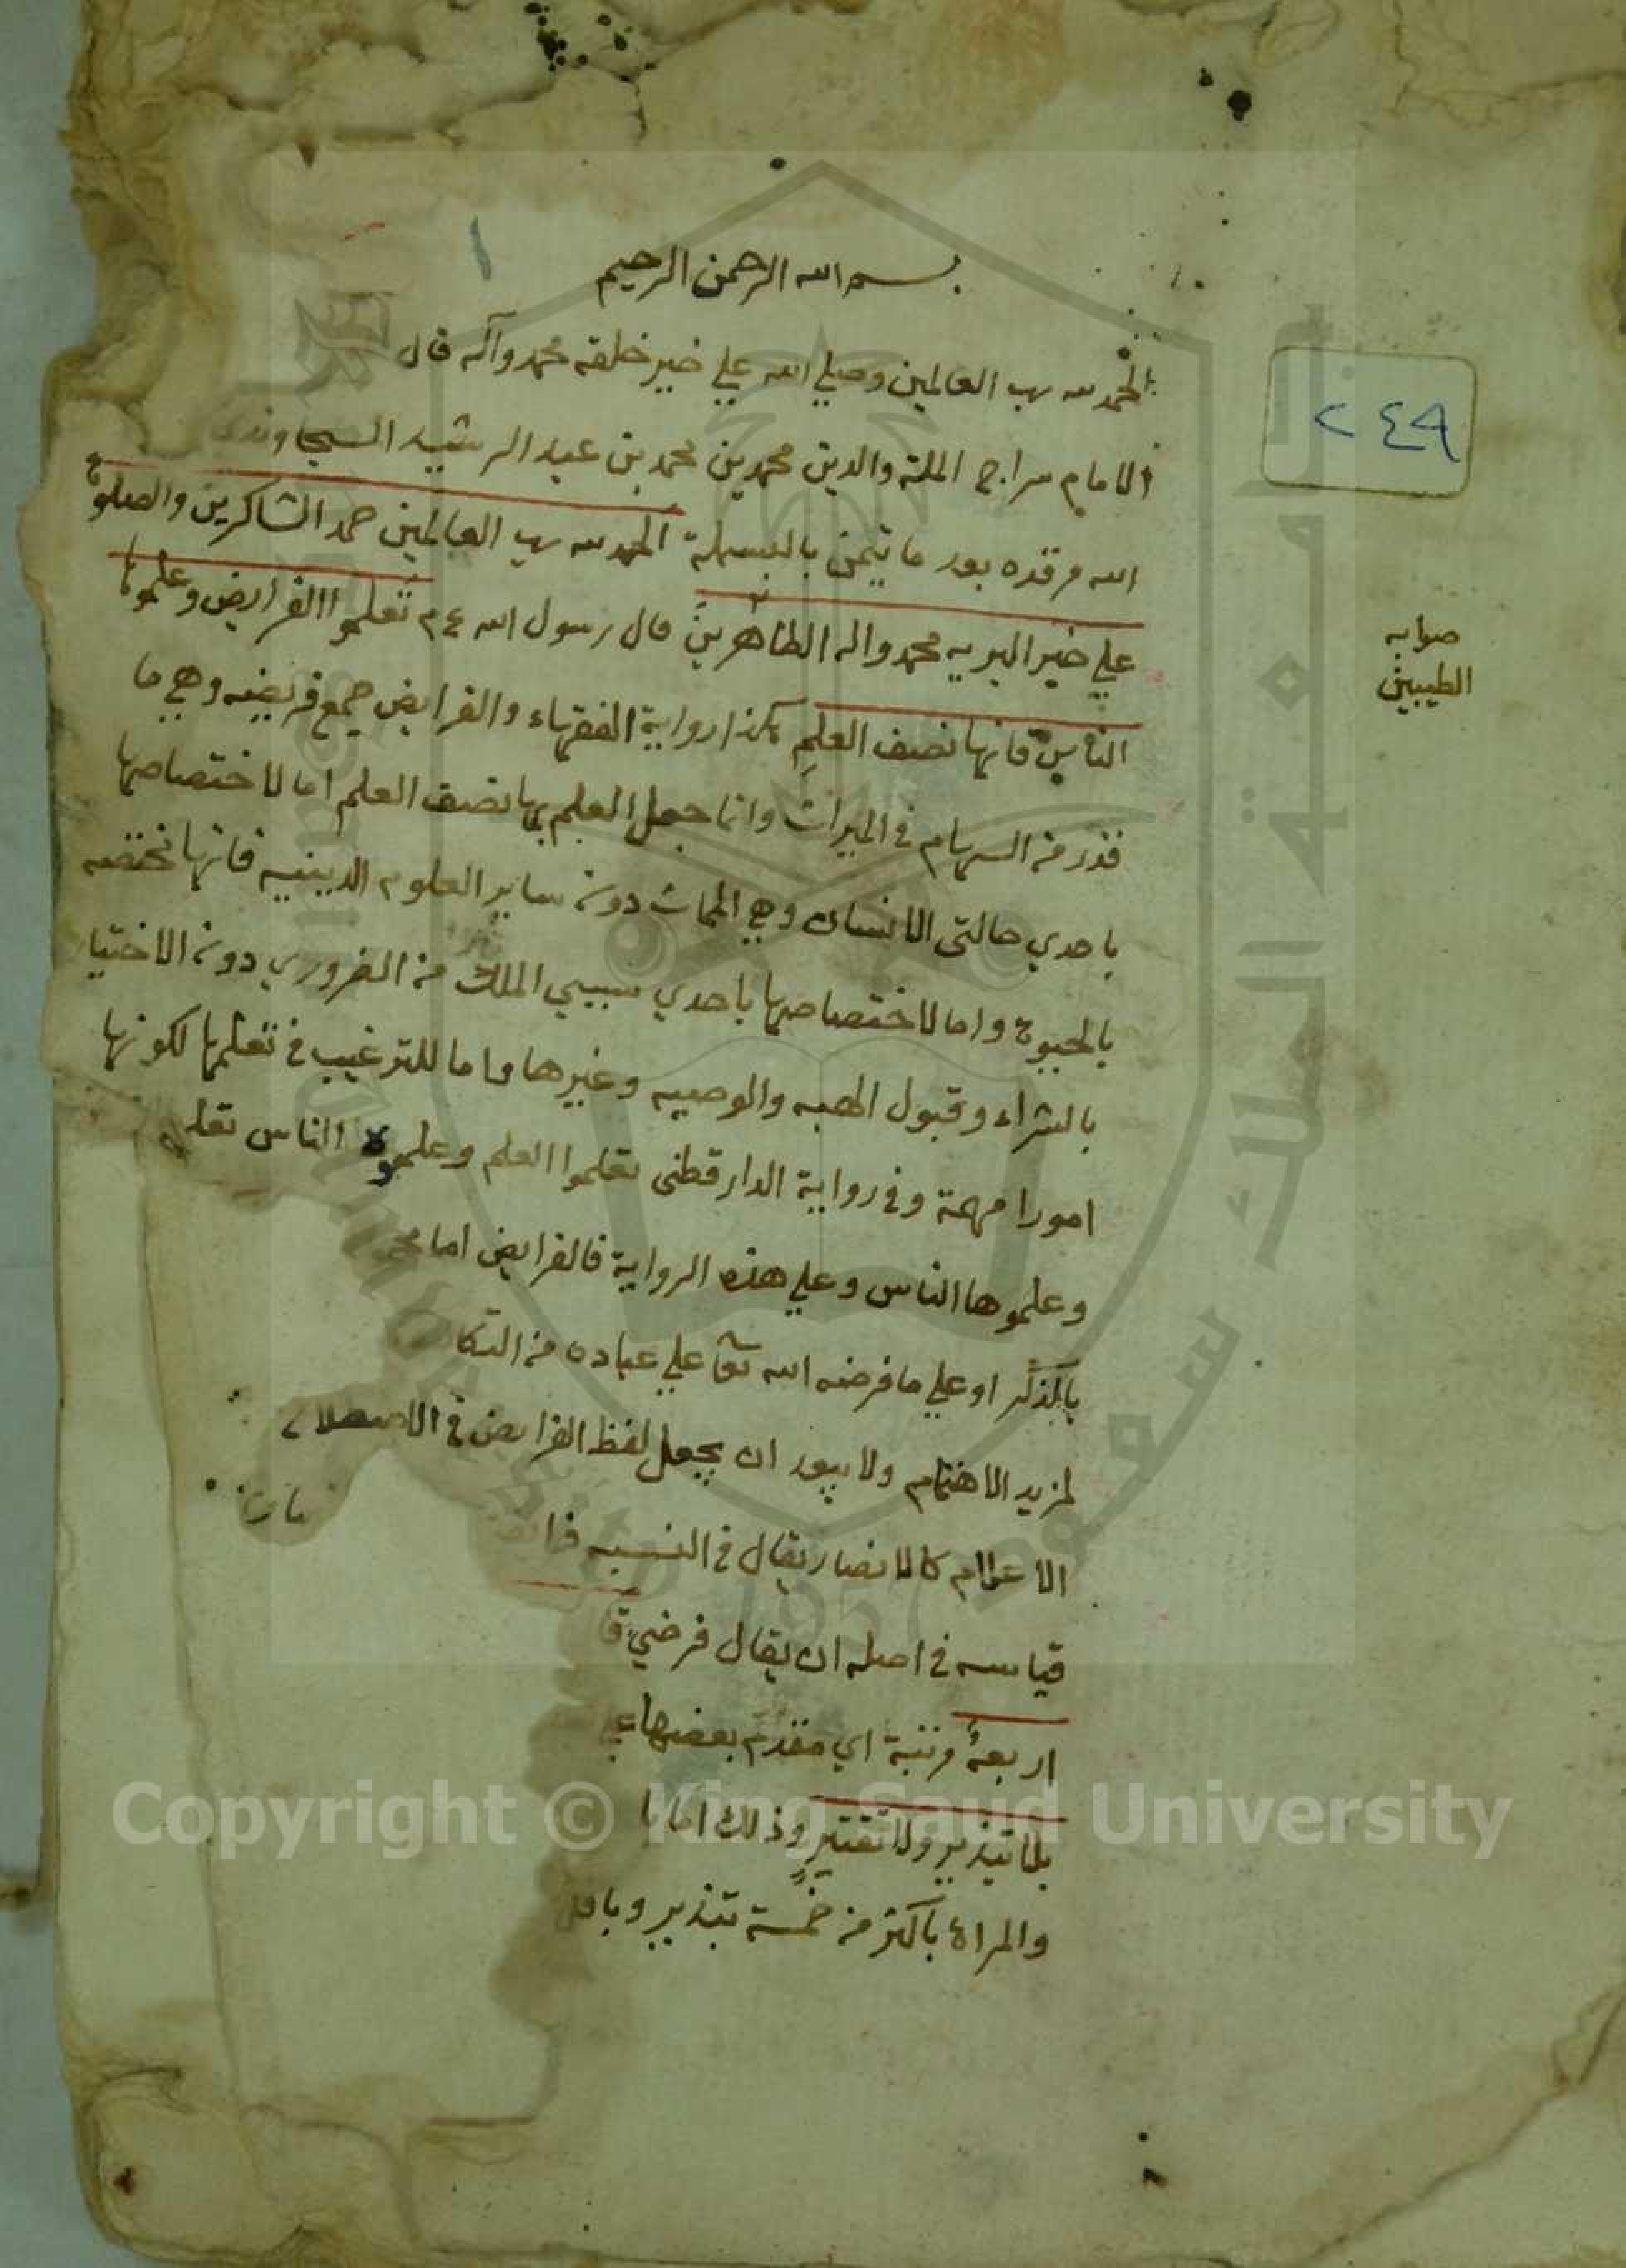 بسم الله الرحمن الرحيم
الحمد لله رب العالمين وصلي الله علي خير خلقه محمد وآله قال
الامام سراج الملة والدين محمد بن محمد بن عبد الرشيد السجاوندي
الله مرقده بعد ما تيمن بالبسملة الحمد لله رب العالمين حمد الشاكرين والصلوة
علي خير البريه محمد واله الطاهرين قال رسول الله ع م تعلموا الفرايض وعلموها
الناس فانها نصف العلم هكذا رواية الفقهاء والفرايض جمع فريضه وهي ما
قدر من السهام في الميراث وانما جعل العلم بها نصف العلم اما لاختصاصها
باحدي حالتي الانسان وهي الممات دون ساير العلوم الدينيه فانها مختصه
بالحيوة واما لاختصاصها باحدي سببي الملك من الضروري دون الاختيا
بالشراء وقبول الهبه والوصيه وغيرها واما للترغيب في تعلمها لكونها
امورا مهمة وفي رواية الدارقطني تعلموا العلم وعلموه الناس تعلـ
وعلموها الناس وعلي هذه الرواية فالفرايض اما
بالذكر او علي ما فرضه الله تعا علي عباده من التكا
لمزيد الاهتمام ولا يبعد ان يجعل لفظ الفرايض في الاصطلاح
الاعلام كالانصار يقال في النسبه
قياسه في اصله ان يقال فرضي
اربعة مرتبة اي مقدم بعضها
بلا تبذير ولا تقتير وذلك اما با
والمراة باكثر من خمسة تبذير وباقل
٢٤٩
صوابه
الطيبين
١
جامعة الملك سعود
King Saud University
1957
Copyright © King Saud University